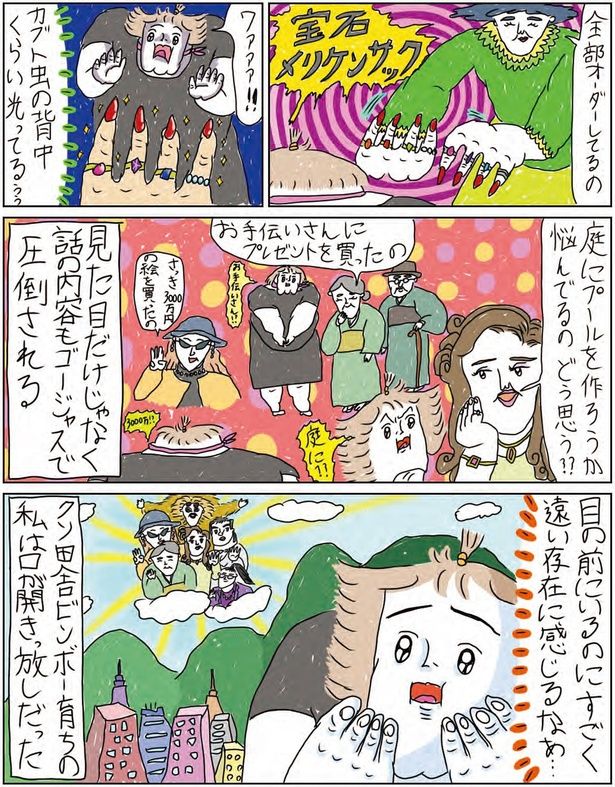 全部オーダーしてるの
宝石
メリケンサック
ワァァァ!!
カブト虫の背中
くらい光ってる…
庭にプールを作ろうか
悩んでるの どう思う??
お手伝いさんに
プレゼントを買ったの
お手伝いさん!?
さっき3000万円
の絵を買ったの
庭に!?
3000万!?
見た目だけじゃなく
話の内容もゴージャスで
圧倒される
目の前にいるのにすごく
遠い存在に感じるなぁ…
クソ田舎ビンボー育ちの
私は口が開きっ放しだった